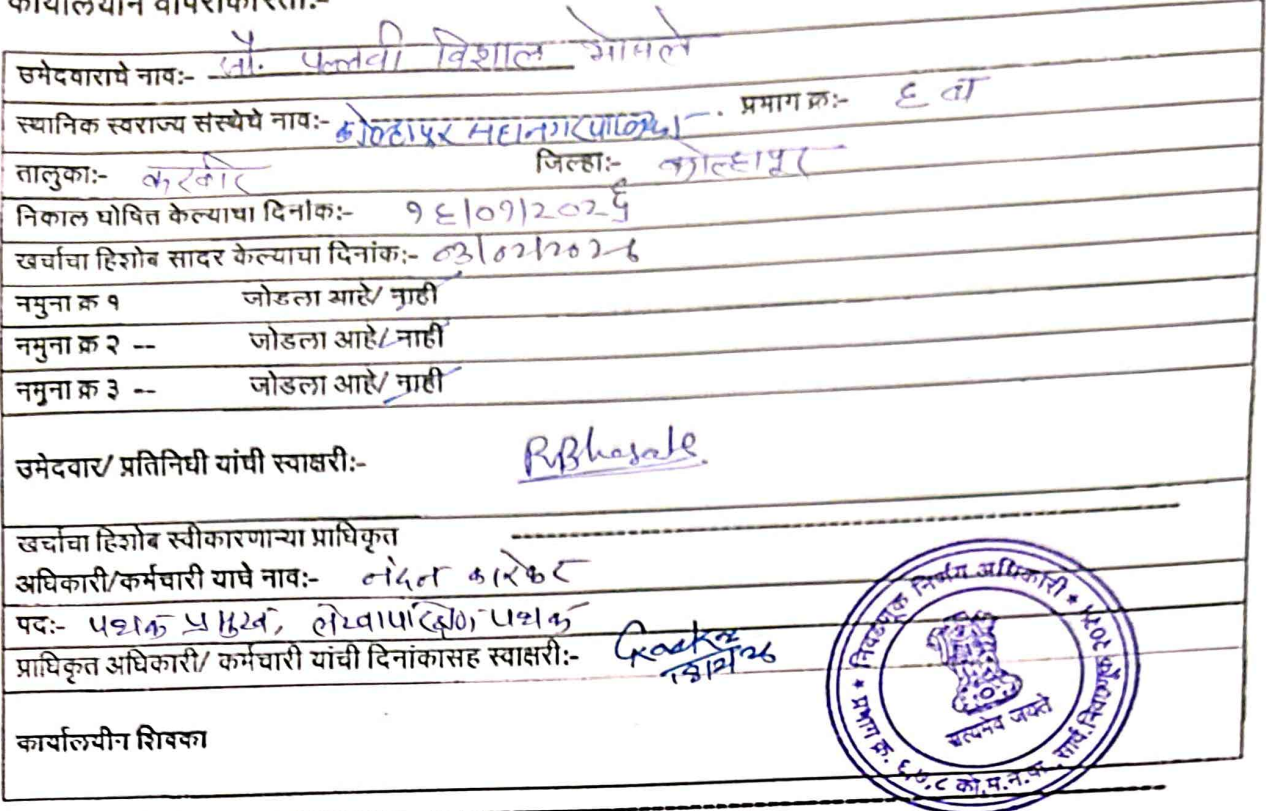 कार्यालयीन वापराकरिता:-
उमेदवाराचे नाव:- सौ. पल्लवी विशाल भोसले
स्थानिक स्वराज्य संस्थेचे नाव:- कोल्हापूर महानगरपालिका. प्रभाग क्र:- ६
तालुका:- करवीर जिल्हा:- कोल्हापूर
निकाल घोषित केल्याचा दिनांक:- १६/०१/२०२६
खर्चाचा हिशोब सादर केल्याचा दिनांक:- ०३/०२/२०२६
नमुना क्र १ जोडला आहे/ नाही
नमुना क्र २ -- जोडला आहे/ नाही
नमुना क्र ३ -- जोडला आहे/ नाही
उमेदवार/ प्रतिनिधी यांची स्वाक्षरी:- RBhosale
खर्चाचा हिशोब स्वीकारणाऱ्या प्राधिकृत
अधिकारी/कर्मचारी याचे नाव:- नंदन कारेकर
पद:- पथक प्रमुख, लेखापरिक्षण पथक
प्राधिकृत अधिकारी/ कर्मचारी यांची दिनांकासह स्वाक्षरी:-
कार्यालयीन शिक्का
★ निवडणूक निर्णय अधिकारी ★
प्रभाग क्र. ६,७,८ को.म.न.पा. सार्व.निवडणूक २०२५
सत्यमेव जयते